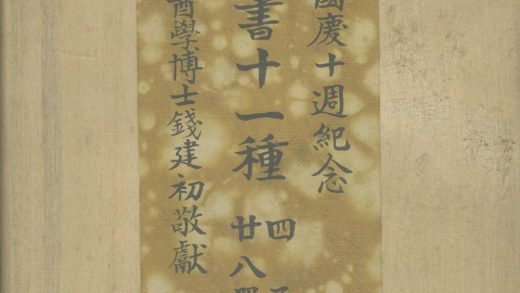 國慶十週紀念
書十一種
四
廿八
學博士錢建初敬獻